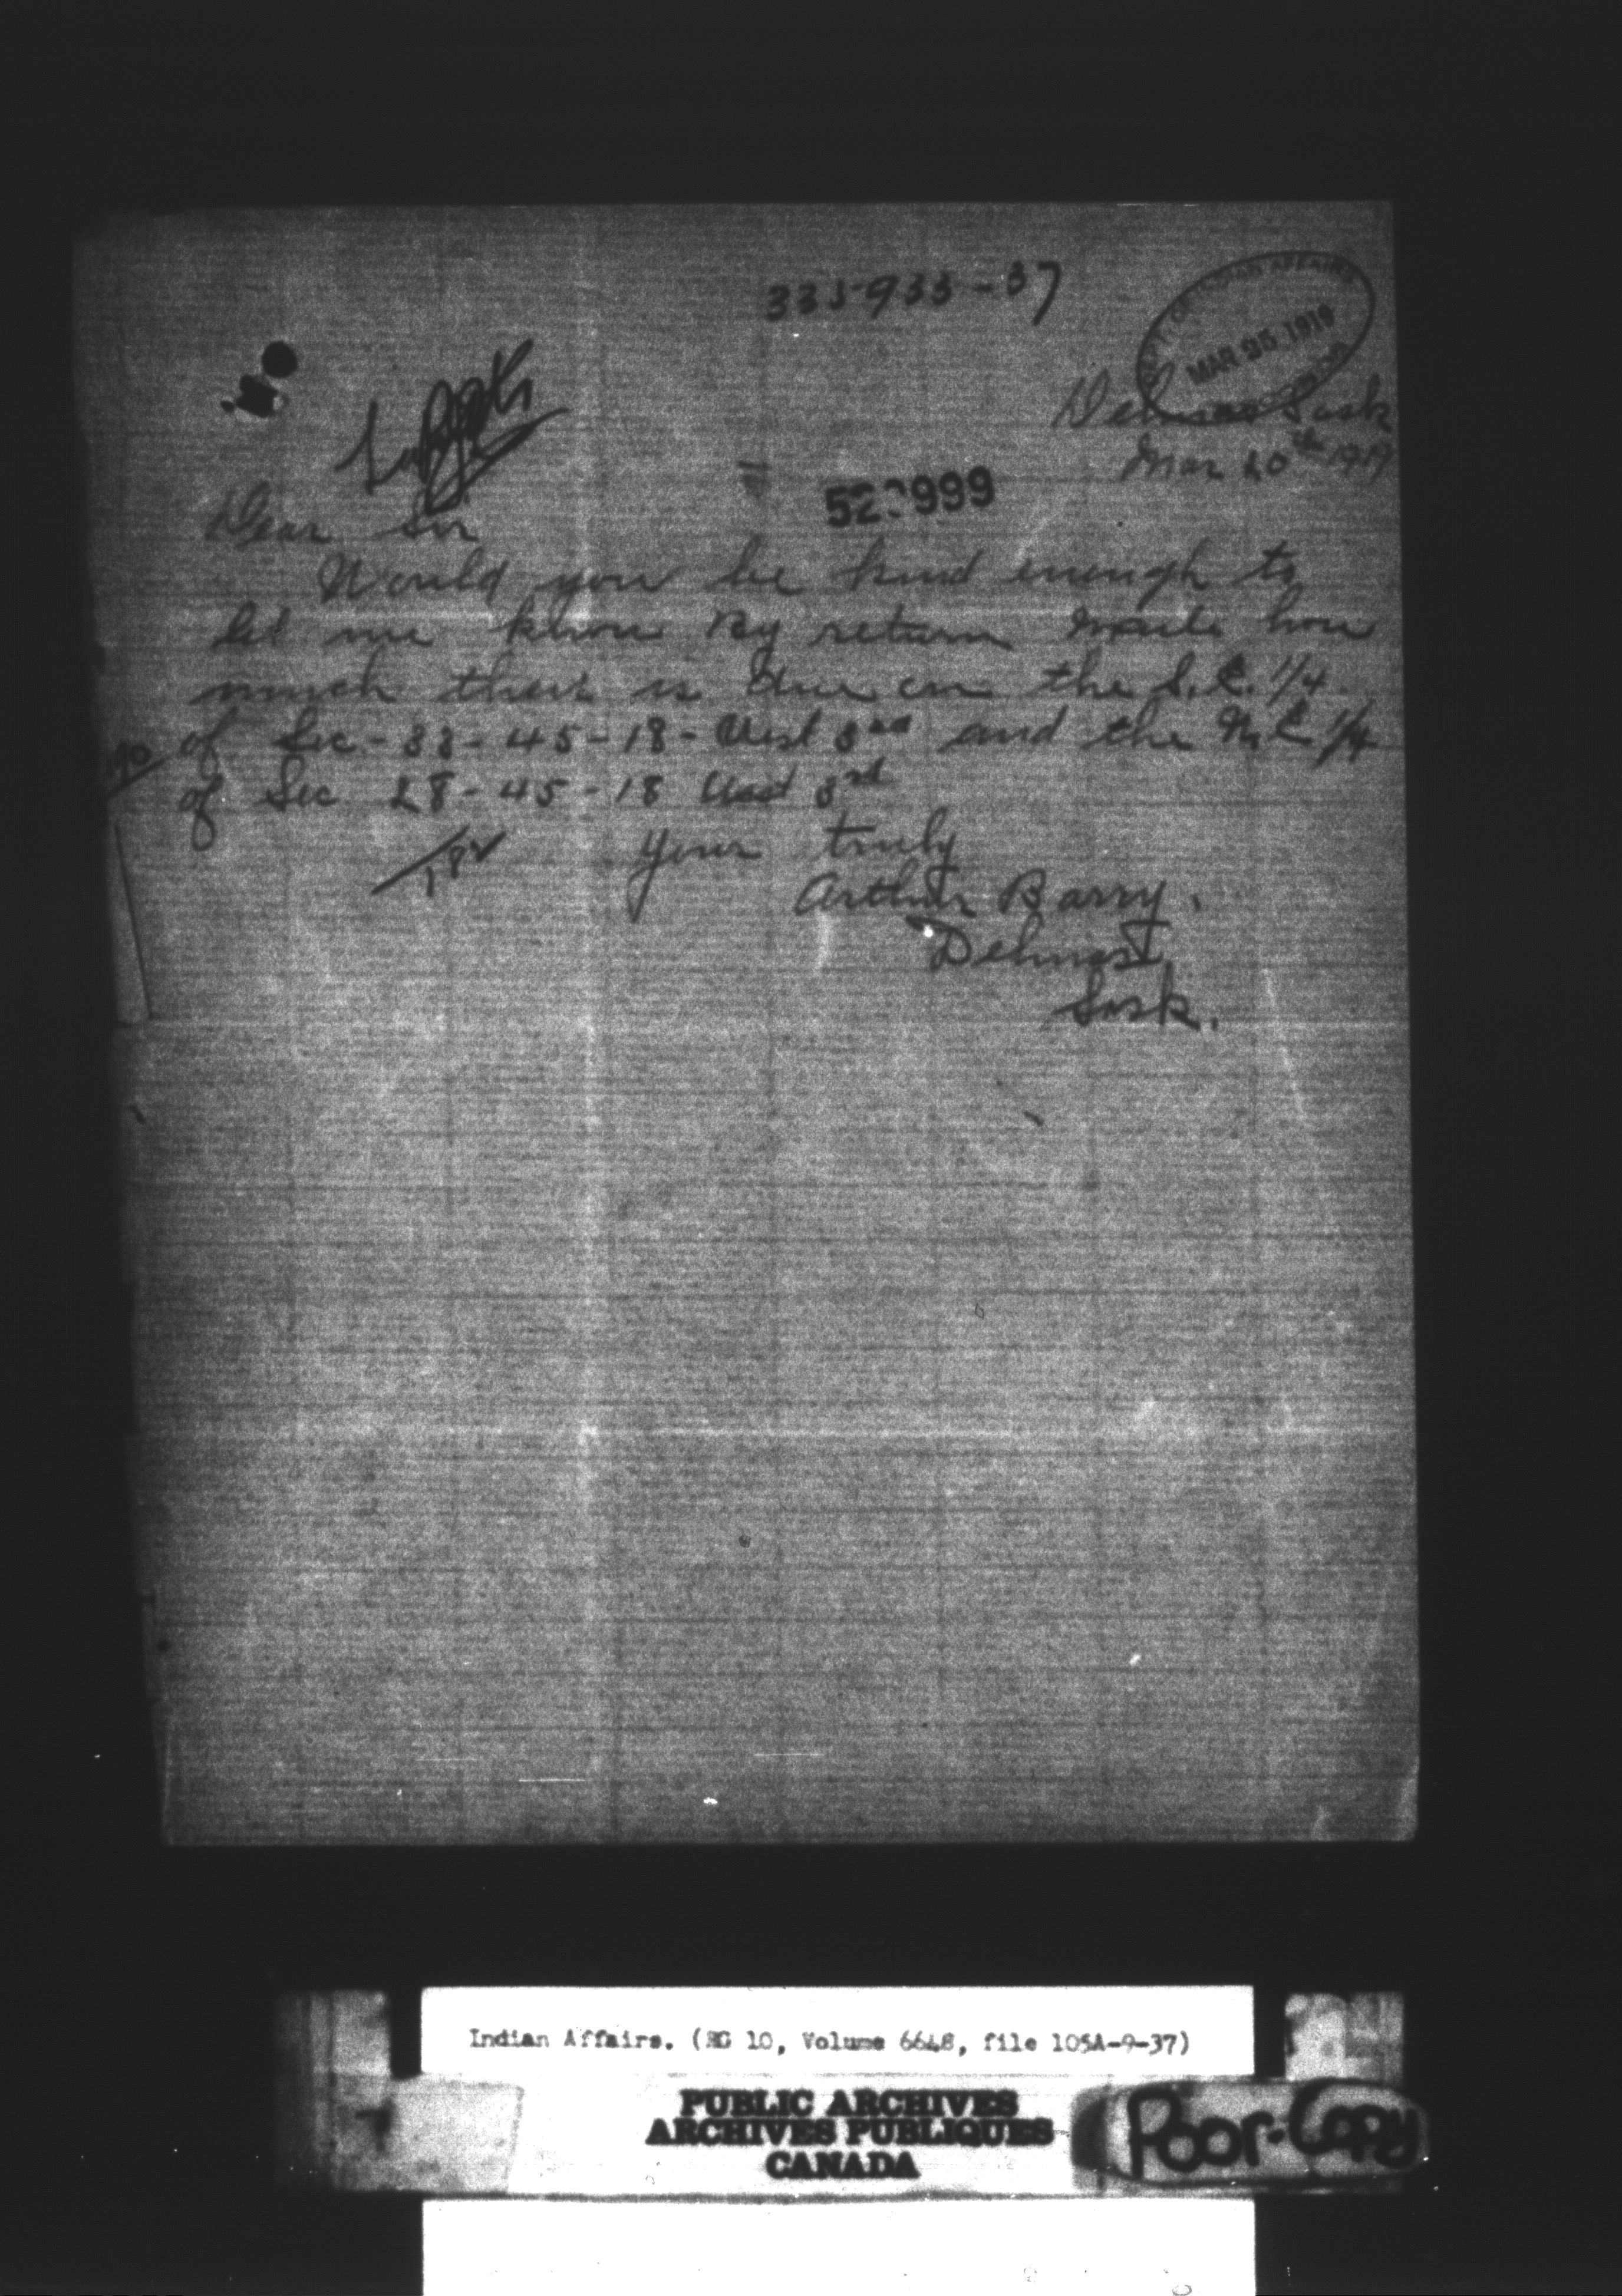 335933-37
DEPT OF INDIAN AFFAIRS
MAR 25 1919
Delmas Sask
Mar 20th 1919
999
Dear Sir
Would you be kind enough to
let me know By return maile how
much their is due on the S.E. 1/4
of Sec-33-45-18-West 3rd and the N.E 1/4
of Sec 28-45-18 West 3rd
Your truly
Arthur Barry.
Delmas
Sask.
Indian Affairs. (RG 10, Volume 6648, file 105A-9-37)
PUBLIC ARCHIVES
ARCHIVES PUBLIQUES
CANADA
Poor-Copy